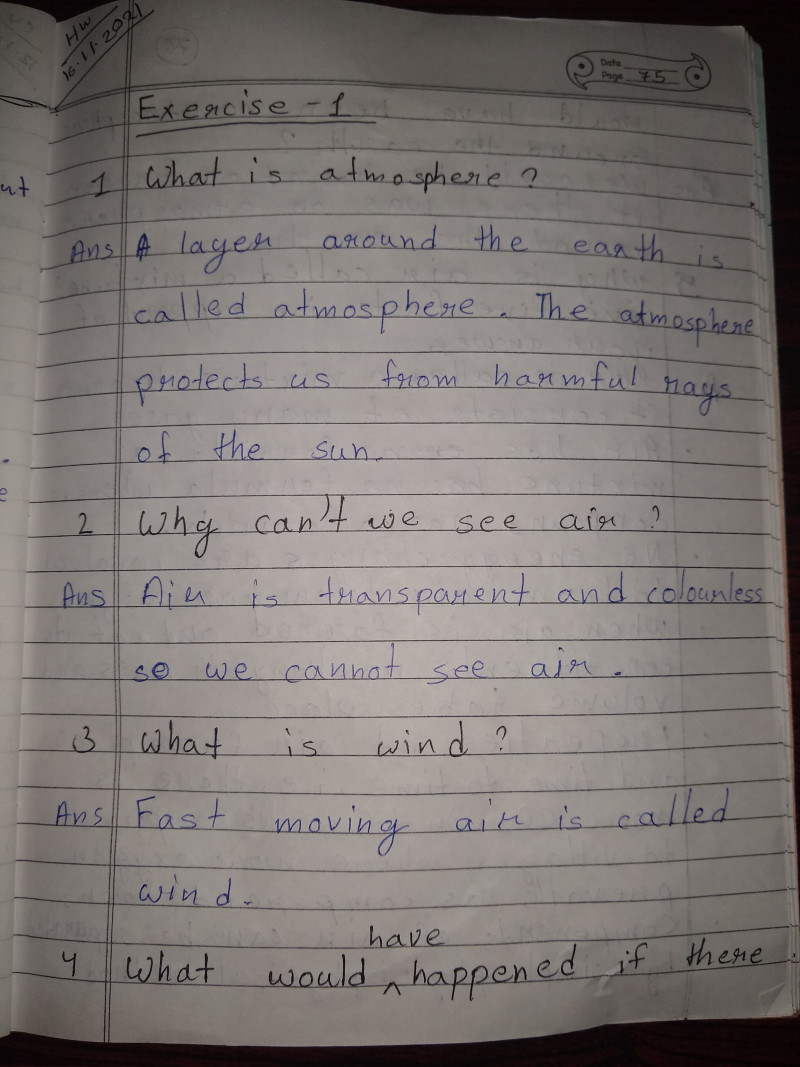 HW
16.11.2021
Date
Page 75
Exercise - 1
1 What is atmosphere ?
Ans A layer around the earth is
called atmosphere. The atmosphere
protects us from harmful rays
of the sun.
2 Why can't we see air ?
Ans Air is transparent and colourless
so we cannot see air.
3 What is wind ?
Ans Fast moving air is called
wind.
have
4 What would ^ happened if there